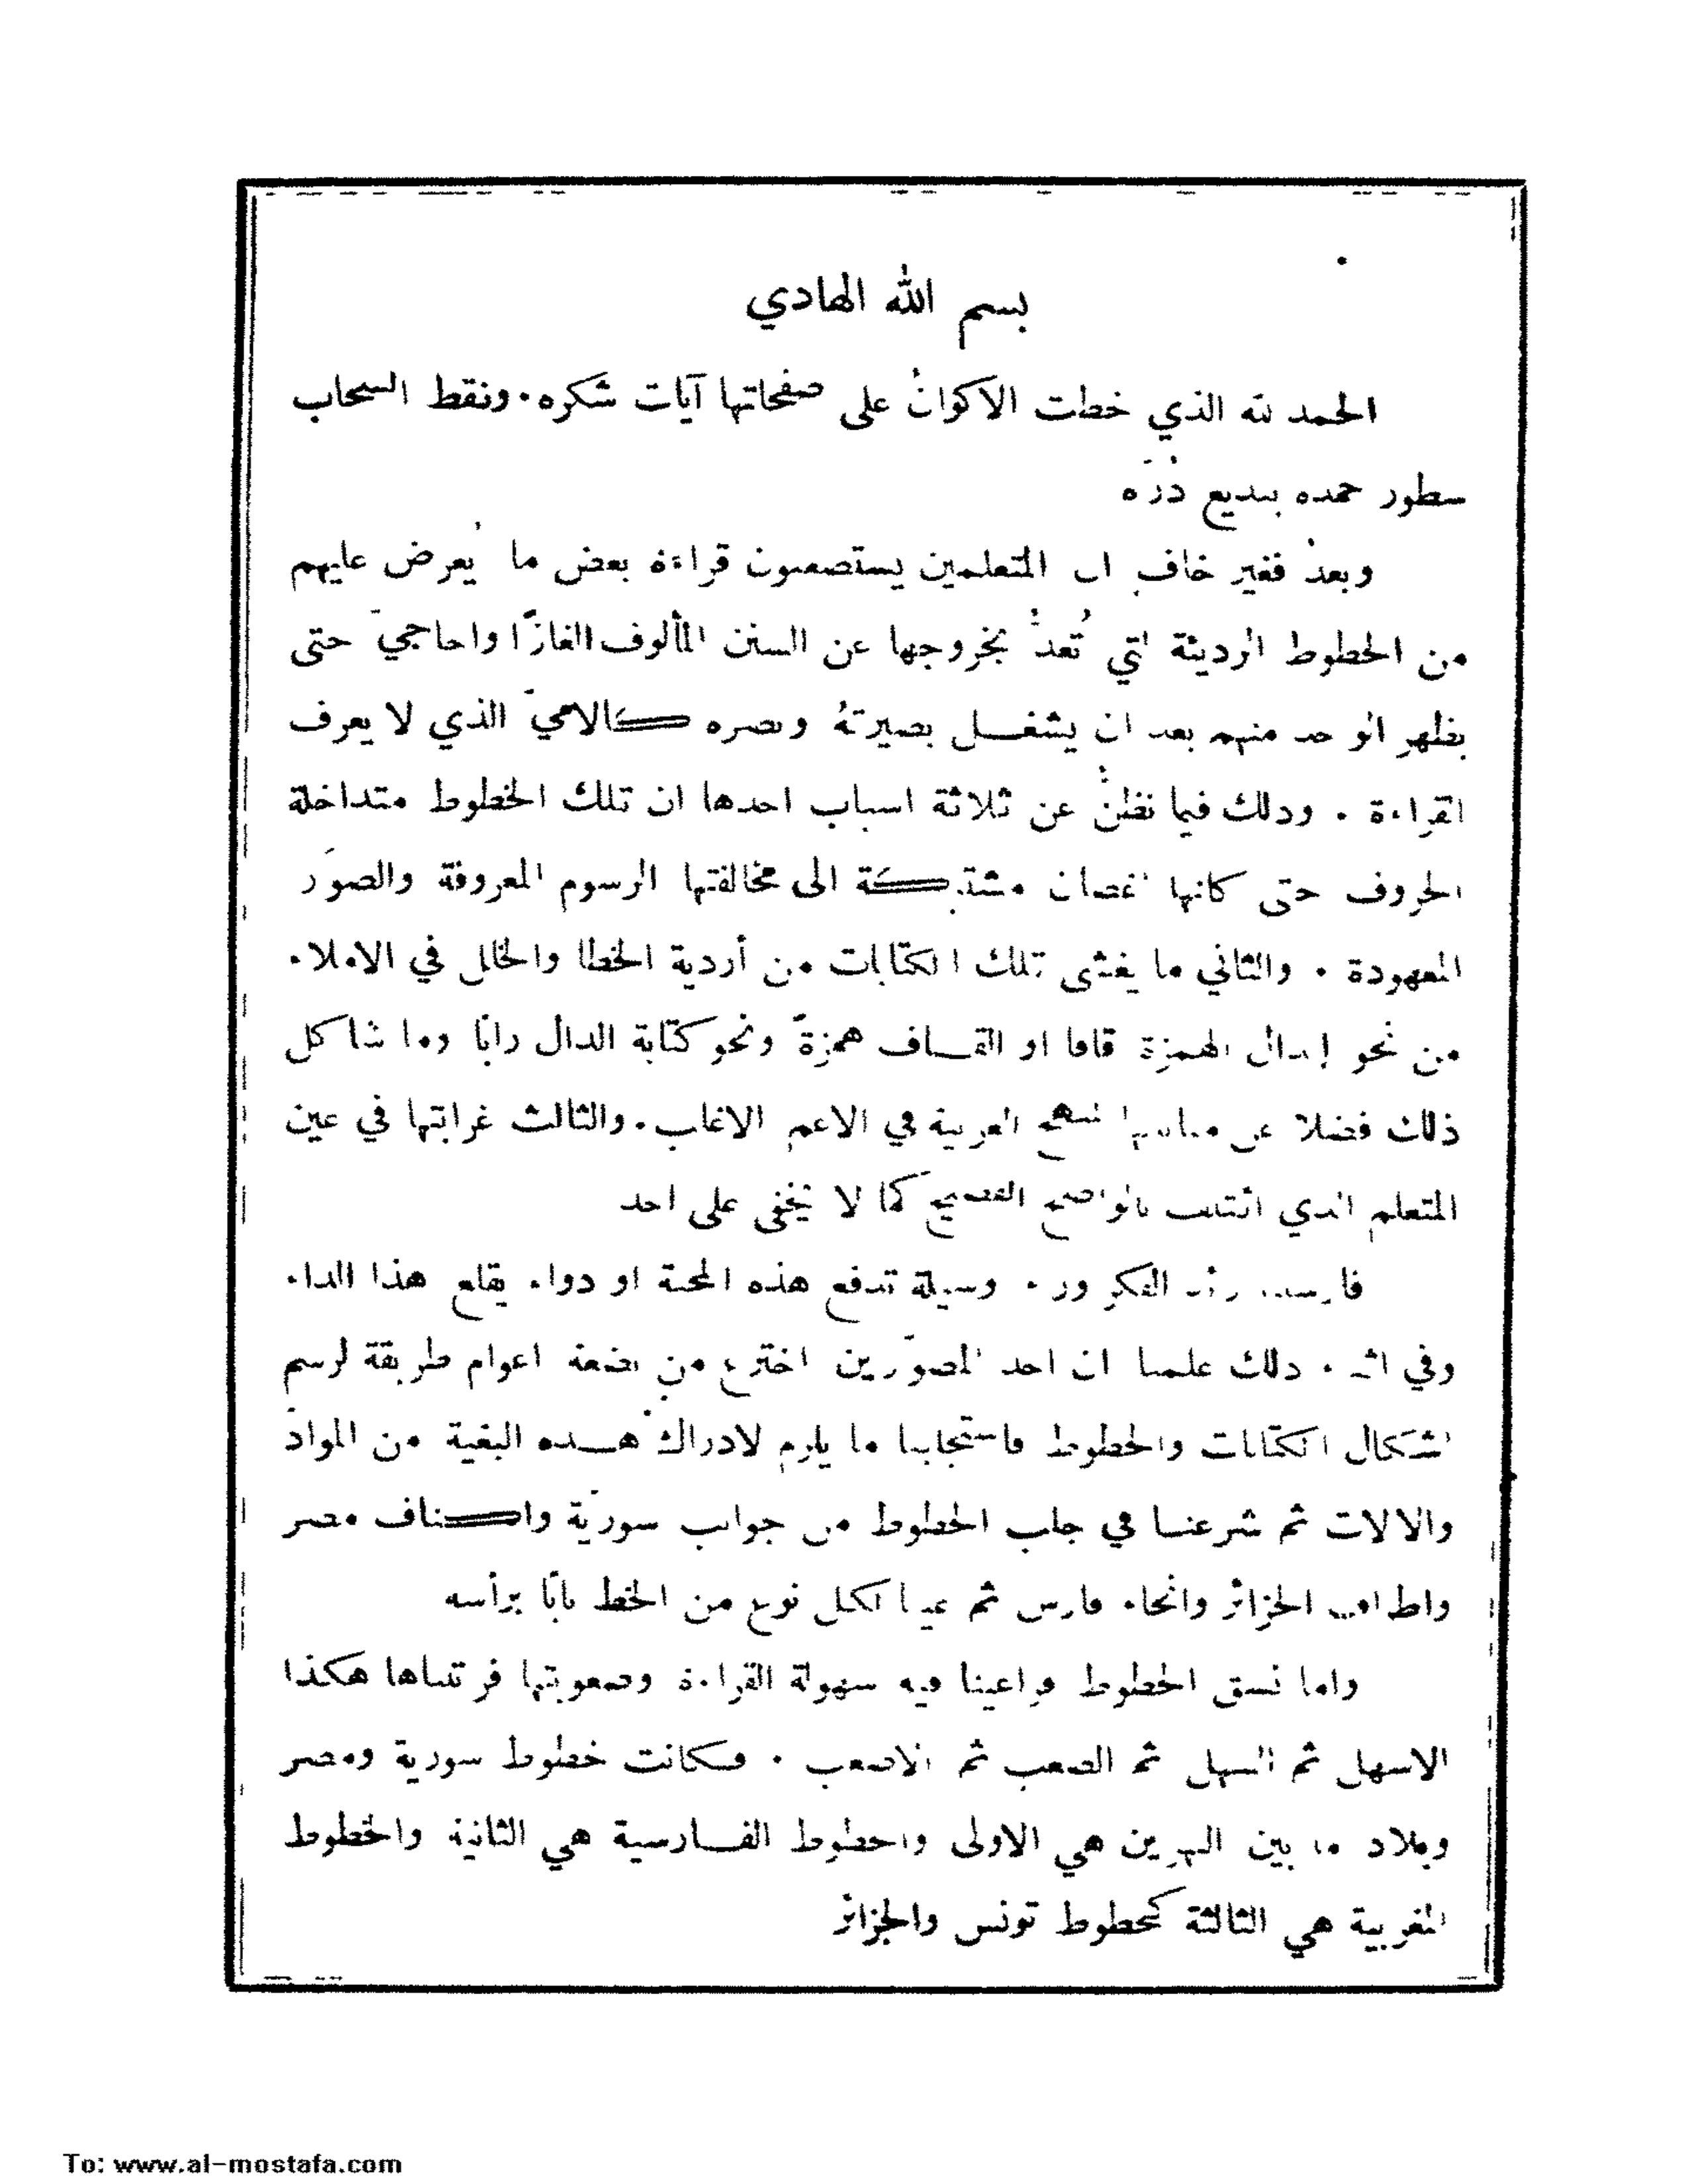 بسم الله الهادي
الحمد لله الذي خطت الاكوانُ على صفحاتها آيات شكره . ونقط السحاب
سطور حمده ببديع دُرَه
وبعدُ فغير خافٍ ان المتعلمين يستصعبون قراءة بعض ما يُعرض عليهم
من الخطوط الرديئة التي تُعدُّ بخروجها عن السنن المألوف الغازًا واحاجيَّ حتى
يظهر الواحد منهم بعد ان يشغل بصيرتهُ وبصره كالاميّ الذي لا يعرف
القراءة . وذلك فيما نظنُّ عن ثلاثة اسباب احدها ان تلك الخطوط متداخلة
الحروف حتى كانها اغصان مشتبكة الى مخالفتها الرسوم المعروفة والصوَر
المعهودة . والثاني ما يغشى تلك الكتابات من أردية الخطا والخلل في الاملاء
من نحو إبدال الهمزة قافا او القاف همزةً ونحو كتابة الدال رايًا وما شاكل
ذلك فضلا عن العربية في الاعم الاغلب . والثالث غرابتها في عين
المتعلم الذي بالواضح الفصيح كما لا يخفى على احد
الفكر وسيلة تدفع هذه المحنة او دواء يقلع هذا الداء
وفي اثناء ذلك علمنا ان احد المصوّرين اخترع من بضعة اعوام طريقة لرسم
اشكال الكتابات والخطوط فاستجلبنا ما يلزم لادراك هذه البغية من الموادّ
والالات ثم شرعنا في جلب الخطوط من جوانب سوريّة واكناف مصر
واطراف الجزائر وانحاء فارس ثم عينا لكل نوع من الخط بابًا برأسه
واما نسق الخطوط فراعينا فيه سهولة القراءة وصعوبتها فرتبناها هكذا
الاسهل ثم السهل ثم الصعب ثم الاصعب . فكانت خطوط سورية ومصر
وبلاد ما بين النهرين هي الاولى والخطوط الفارسية هي الثانية والخطوط
المغربية هي الثالثة كخطوط تونس والجزائر
To: www.al-mostafa.com